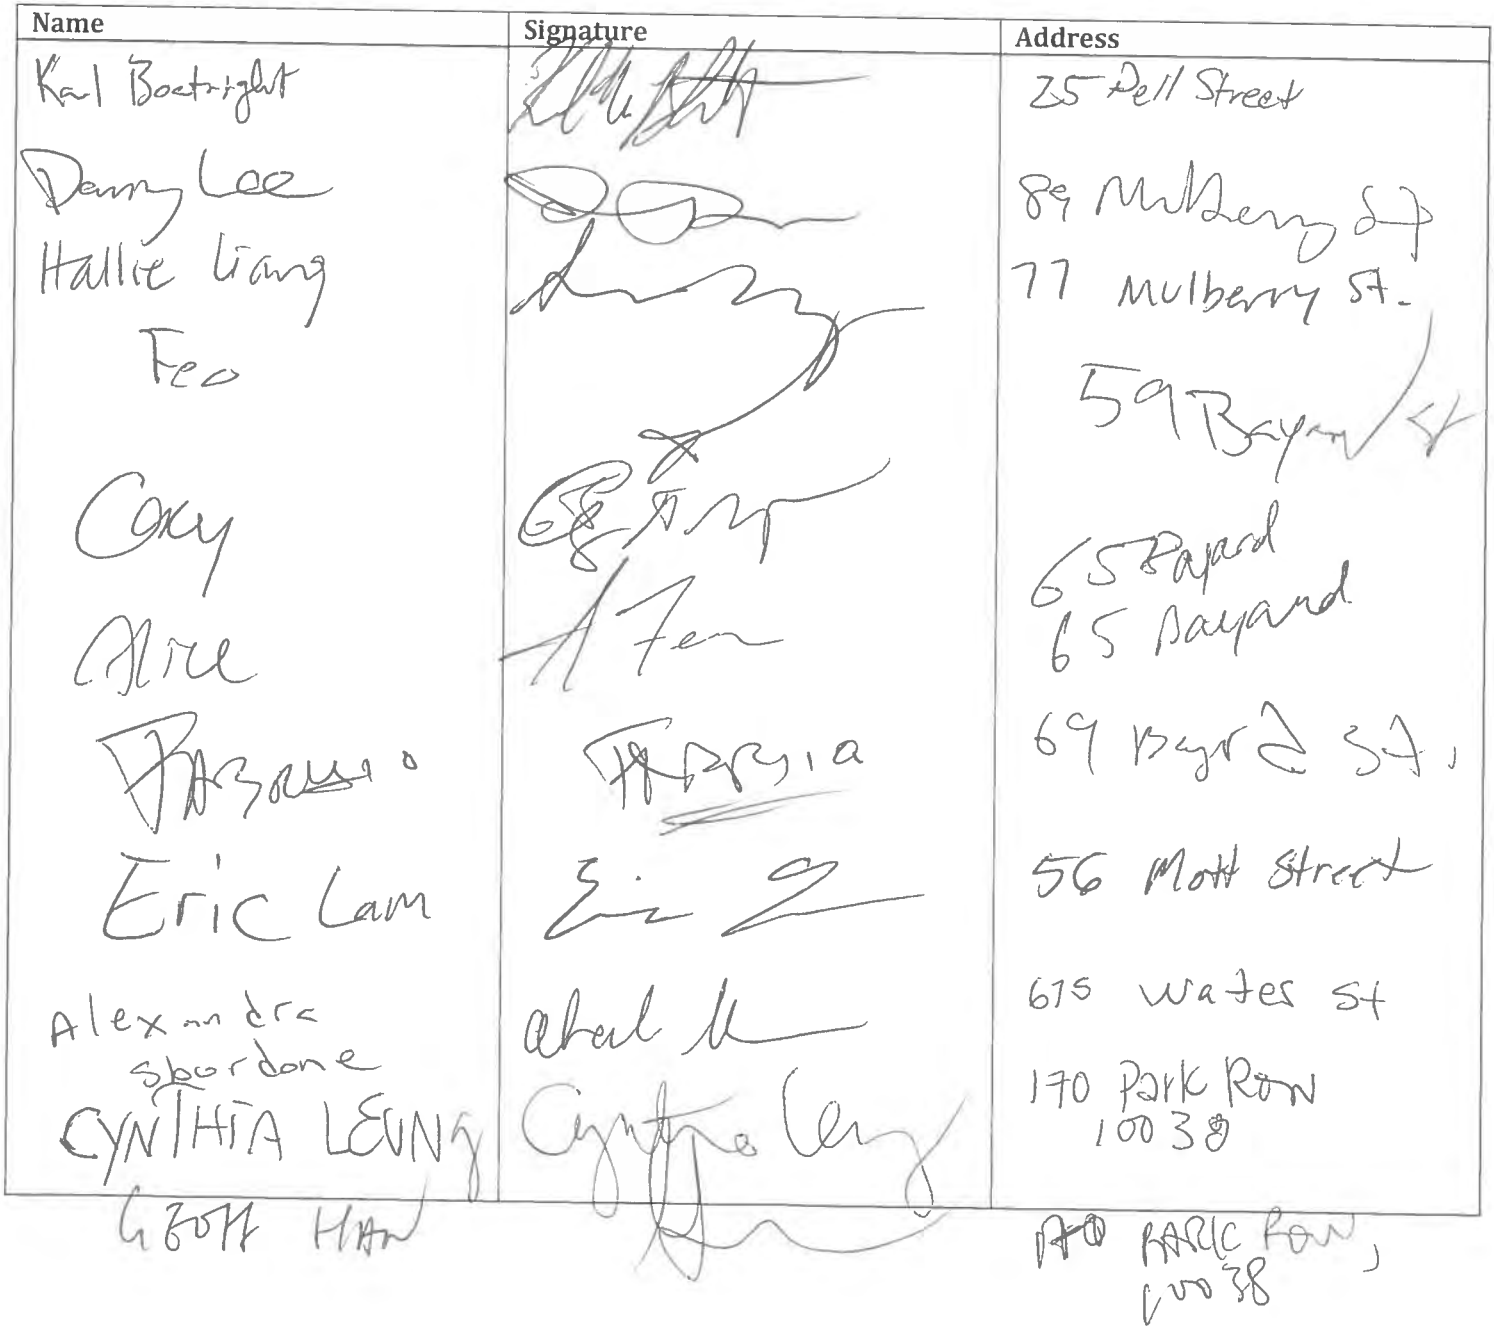 Name Signature Address
Karl Boatright 25 Pell Street
Danny Lee 89 Mulberry St
Hallie Liang 77 Mulberry St.
Feo 59 Bayard St
Coxy 65 Bayard
Alice A Fen 65 Bayard
69 Bayrd St.
Eric Lam 56 Mott Street
Alexandra 675 Water St
sbordone
CYNTHIA LEUNG Cynthia Leung 170 Park Row
10038
GEOFF HAN 170 PARK ROW,
10038